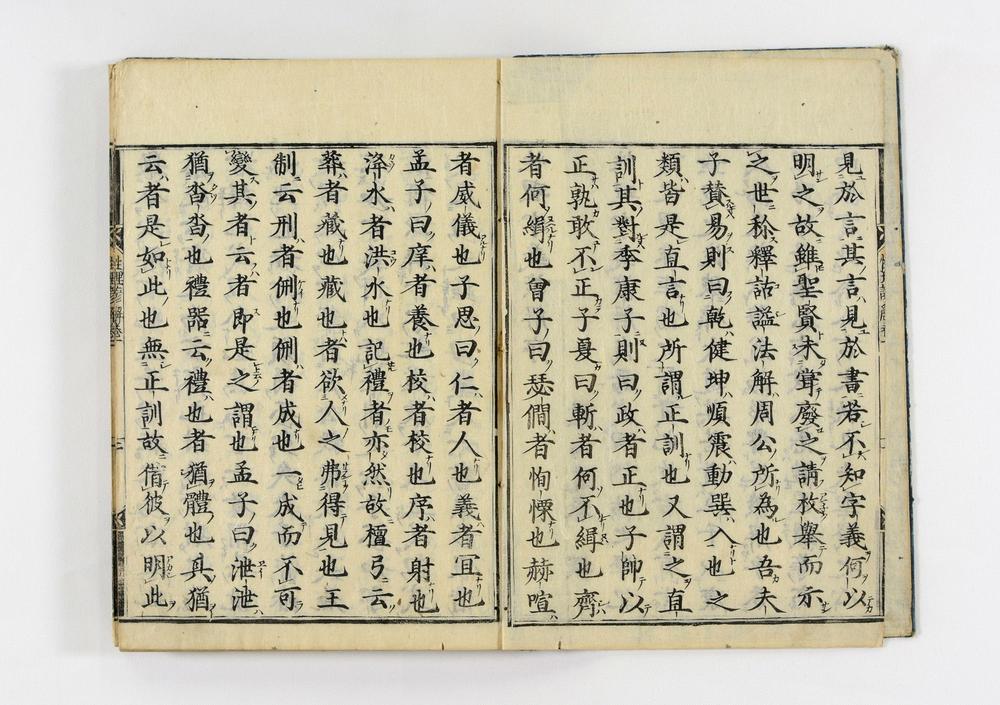 見於言其言見於書若不知字義何以
明之故雖聖賢未甞廢之請枚舉而示
之世称釋詁謚法解周公所為也吾夫
子賛易則曰乾健坤順震動巽入也之
類皆是直言也所謂正訓也又謂之直
訓其對季康子則曰政者正也子帥以
正孰敢不正子憂曰斬者何不緝也齊
者何緝也曾子曰瑟僩者恂慄也赫喧
者威儀也子思曰仁者人也義者宜也
孟子曰庠者養也校者校也序者射也
洚水者洪水也記禮者亦然故檀弓云
葬者藏也藏也者欲人之弗得見也王
制云刑者侀也侀者成也一成而不可
變其者云者即是之謂也孟子曰泄泄
猶沓沓也禮器云禮也者猶體也其猶
云者是如此也無正訓故借彼以明此